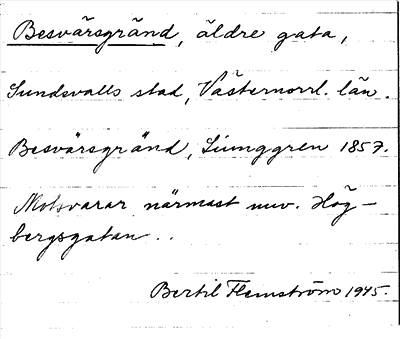 Besvärsgränd, äldre gata,
Sundsvalls stad, Västernorrl. län.
Besvärsgränd, Ljunggren 1857.
Motsvarar närmast nuv. Hög-
bergsgatan..
Bertil Flemström 1945.